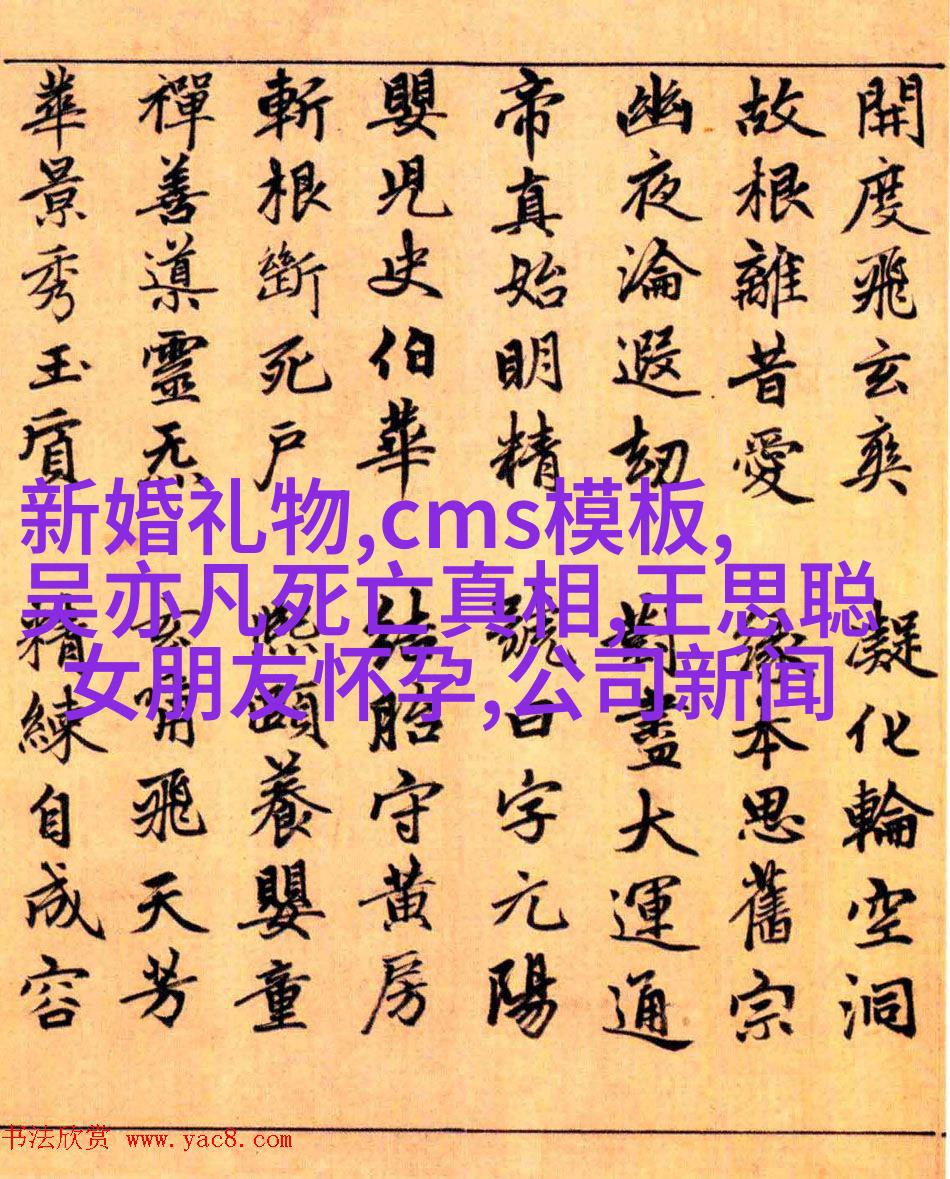 開度飛玄爽 凝化輪空洞
故根離昔愛 緣本思舊宗
幽夜淪遐劫 對盡大運通
帝真始明精 號曰字元陽
嬰兒史伯華 結胎守黃房
斬根斷死戶 熙頤養嬰童
禪善導靈炁 玄哺飛天芳
華景秀玉質 精練自成容
新婚礼物,cms模板,
吴亦凡死亡真相,王思聪
女朋友怀孕,公司新闻
书法欣赏 www.yac8.com